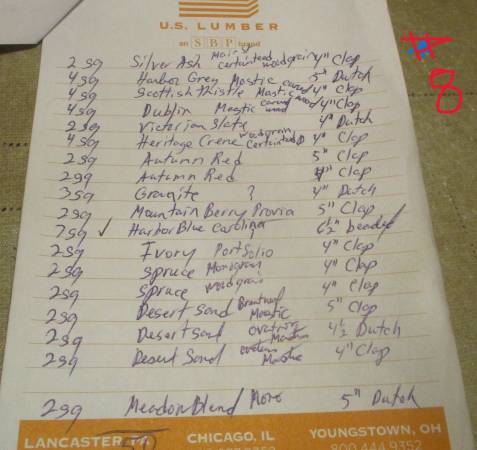 U.S. LUMBER
an SBP brand
# 8
2 sg Silver Ash certainteed woodgrain 4" Clap
4sg Harbor Grey Mastic carved 5" Dutch
4sg Scottish thistle Mastic carved wood 4" Clap
4sg Dublin Mastic carved wood 4" Clap
2sg Victorian Slate 4" Dutch
4sg Heritage Creme woodgrain Certainteed 4" Clap
2sg Autumn Red 5" Clap
2sg Autumn Red 4" Clap
3sg Granite ? 4" Dutch
2sg Mountain Berry Provia 5" Clap
7sg ✓ Harbor Blue Carolina 6½" beaded
2sg Ivory Portfolio 4" Clap
2sg Spruce Monogram 4" Clap
2sg Spruce woodgrain 4" Clap
2sg Desert Sand Mastic 5" Clap
2sg Desert Sand ovation 4½ Dutch
2sg Desert Sand Mastic 4" Clap
2sg Meadow Blend 5" Dutch
LANCASTER, PA CHICAGO, IL YOUNGSTOWN, OH
800.444.9352